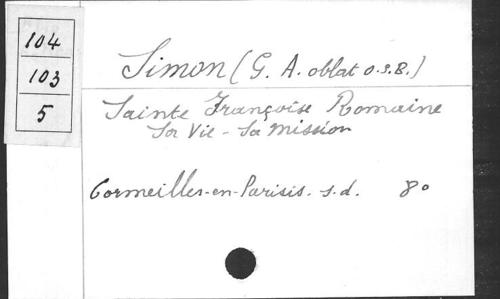 104
103
5
Simon (G. A. oblat o.s.B.)
Sainte Françoise Romaine
Sa Vie - Sa Mission
Cormeilles-en-Parisis. s.d. 8°